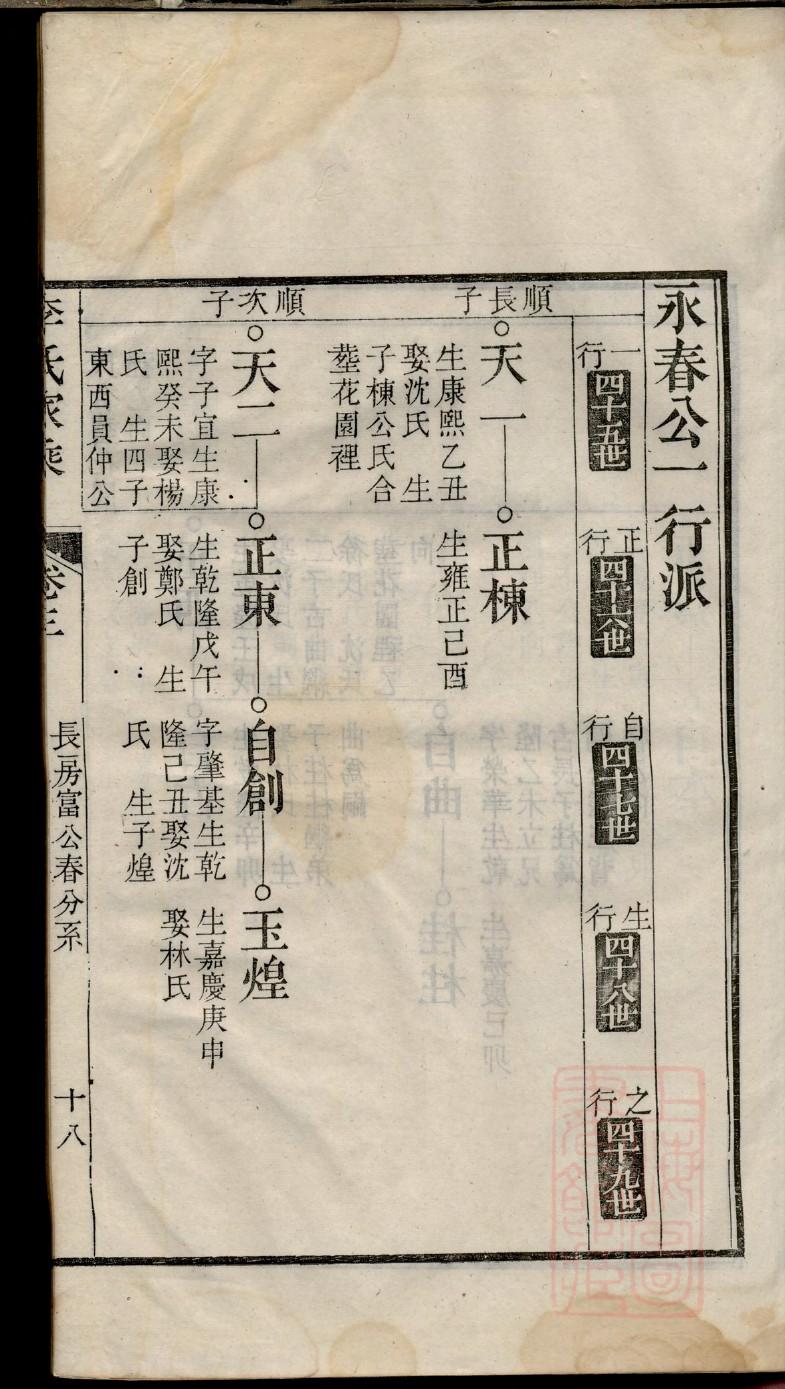 永春公一行派
一行 四十五世
正行 四十六世
自行 四十七世
生行 四十八世
之行 四十九世
順長子
天一
生康熙乙丑
娶沈氏 生
子棟公氏合
塟花園裡
正棟
生雍正己酉
順次子
天二
字子宜生康
熙癸未娶楊
氏 生四子
東西員仲公
正東
生乾隆戊午
娶鄭氏 生
子創
自創
字肇基生乾
隆己丑娶沈
氏 生子煌
玉煌
生嘉慶庚申
娶林氏
李氏家乘
卷三
長房富公春分系
十八